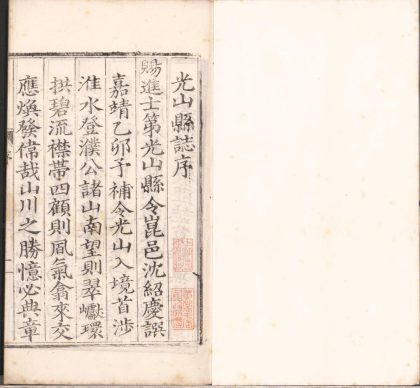 光山縣誌序
賜進士第光山縣令崑邑沈紹慶譔
嘉靖乙卯予補令光山入境首涉
淮水登濮公諸山南望則翠巘環
拱碧流襟帶四顧則風氣翕來交
應煥發偉哉山川之勝憶必典章